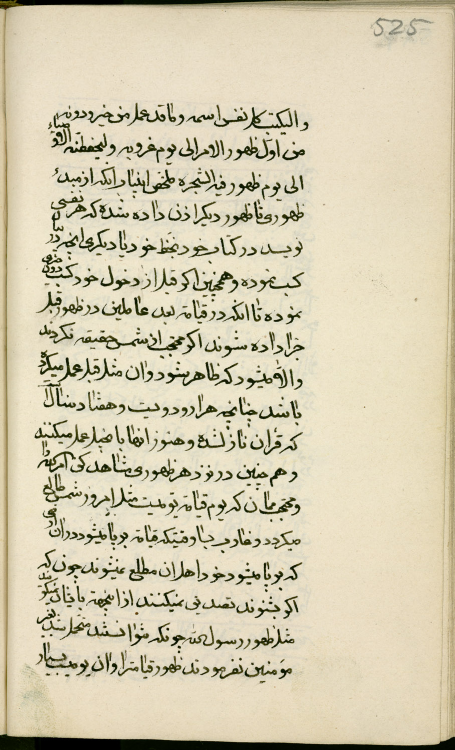 525
و الیکتب کل نفس اسمه و ما قد عمل من خیر و دونه
من اول ظهور الامر الی یوم غروبه و لیحفظنه
الی یوم ظهور فیه الشجره ملخص این باب انکه از مبدء
ظهوری تا ظهور دیگر اذن داده شده که هر نفسی
نویسد در کتاب خود بخط خود یا دیگری انچه در
کسب نموده و همچنین اگر قبل از دخول خود کسب
نموده تا انکه در قیامة بعد عاملین در ظهور قبل
جزا داده شوند اگر محتجب از شمس حقیقه نگردند
و الا میشود که ظاهر شود و ان مثل قبل عمل میکرده
باشد چنانچه هزار و دویست و هفتاد سال
که قران نازل شده و هنوز انها با نجیل عمل میکنند
و هم چنین در نزد هر ظهوری مشاهده کن
و محتجب ممان که یوم قیامة یومیست مثل امروز شمس طالع
میگردد و غارب چه بسا وقتیکه قیامة برپا میشود در ان
که برپا میشود خود اهل ان مطلع نمیشوند چون که
اگر بشنوند تصدیق نمیکنند از اینجهة بایشان
مثل ظهور رسول الله چونکه نتوانستند متحمل شد
مؤمنین نفرمودند ظهور قیامت را و ان یومیست بسیار